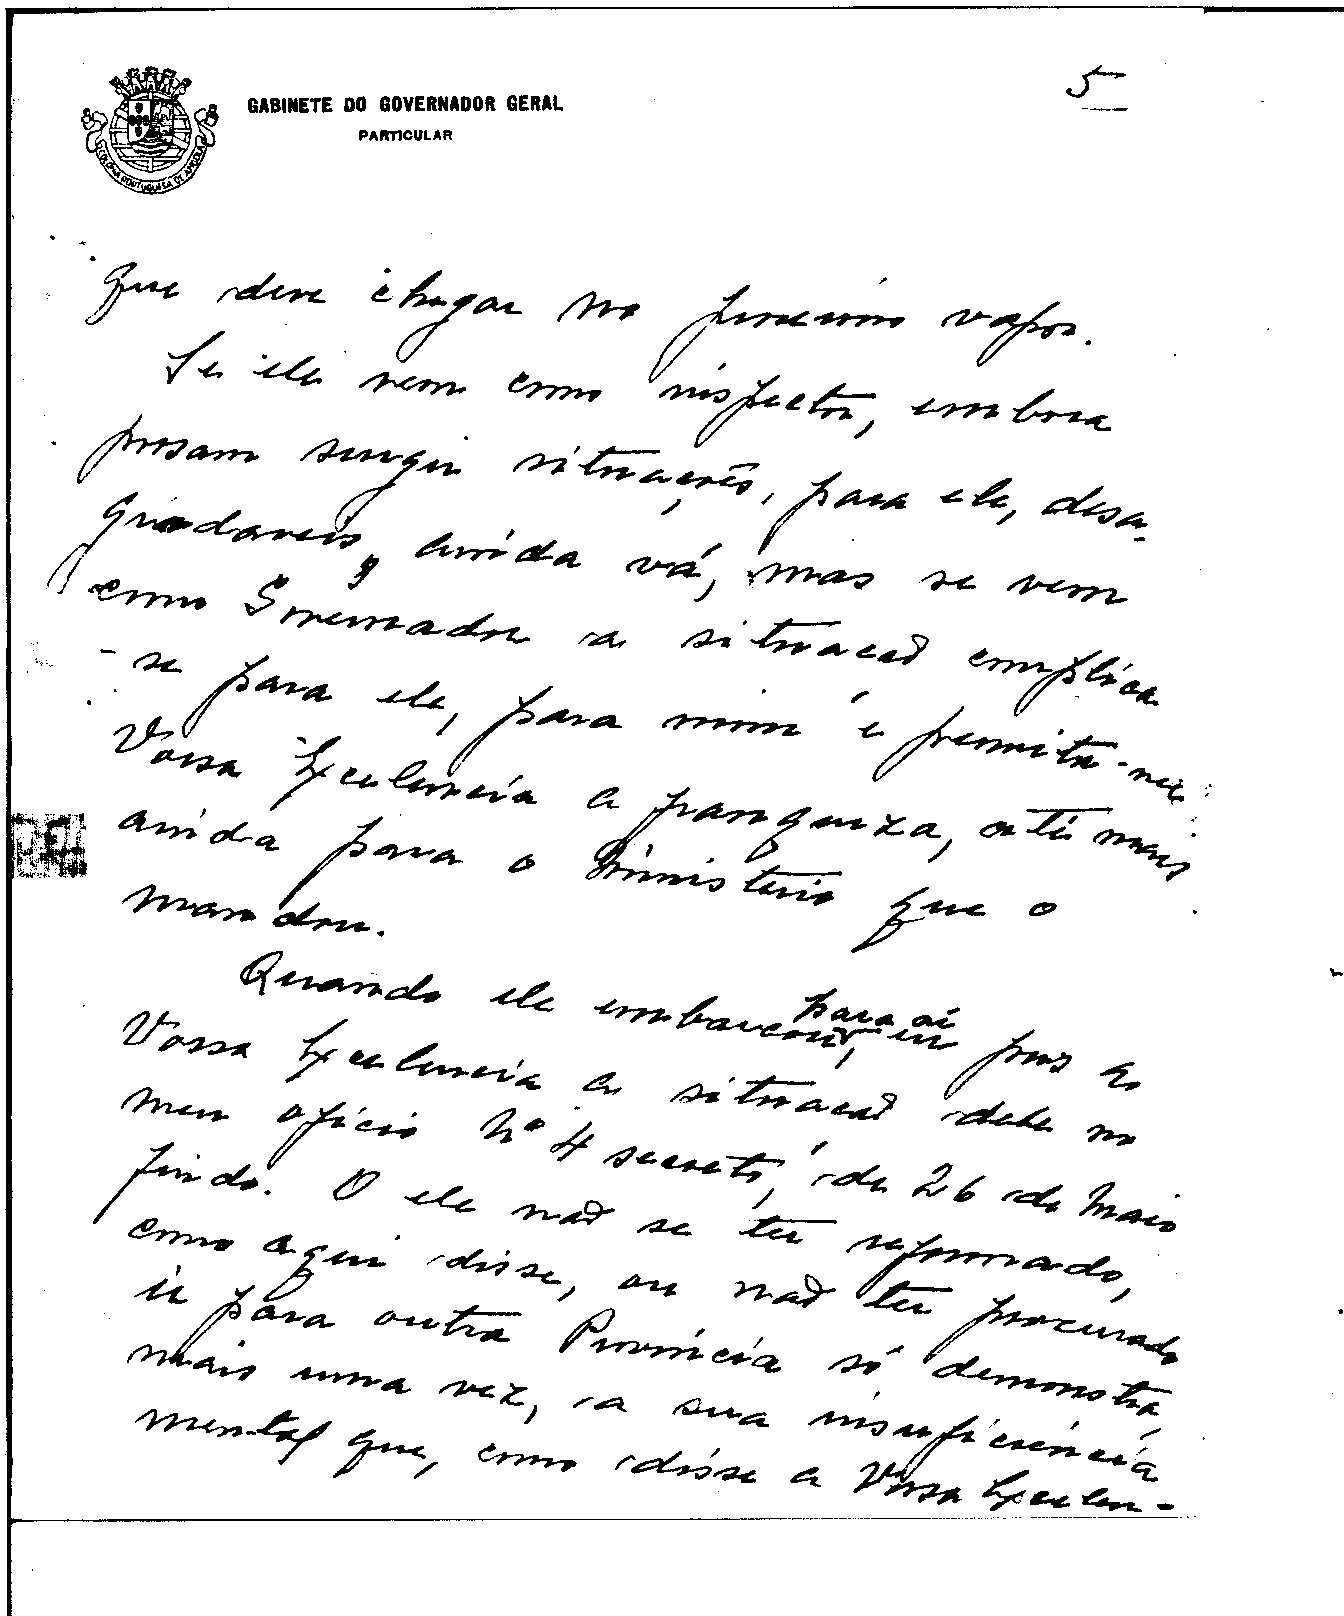 5
GABINETE DO GOVERNADOR GERAL
PARTICULAR
COLONIA PORTUGUESA DE ANGOLA
que deve chegar no proximo vapor.
Se ele vem como inspector, embora
possam surgir situações, para ele, desa-
gradaveis, ainda vá, mas se vem
como Governador a situacão complica
-se para ele, para mim e permita-me
Vossa Excelencia a franqueza, até mais
ainda para o Ministerio que o
mandou.
Quando ele embarcou para aí, eu pus a
Vossa Excelencia a situacão dele no
meu oficio Nº 4 secreto, de 26 de Maio
findo. O ele não se ter reformado,
como aqui disse, ou não ter procurado
ir para outra Provincia só demonstra,
mais uma vez, a sua insuficiência
mental que, como disse a Vossa Excelen-